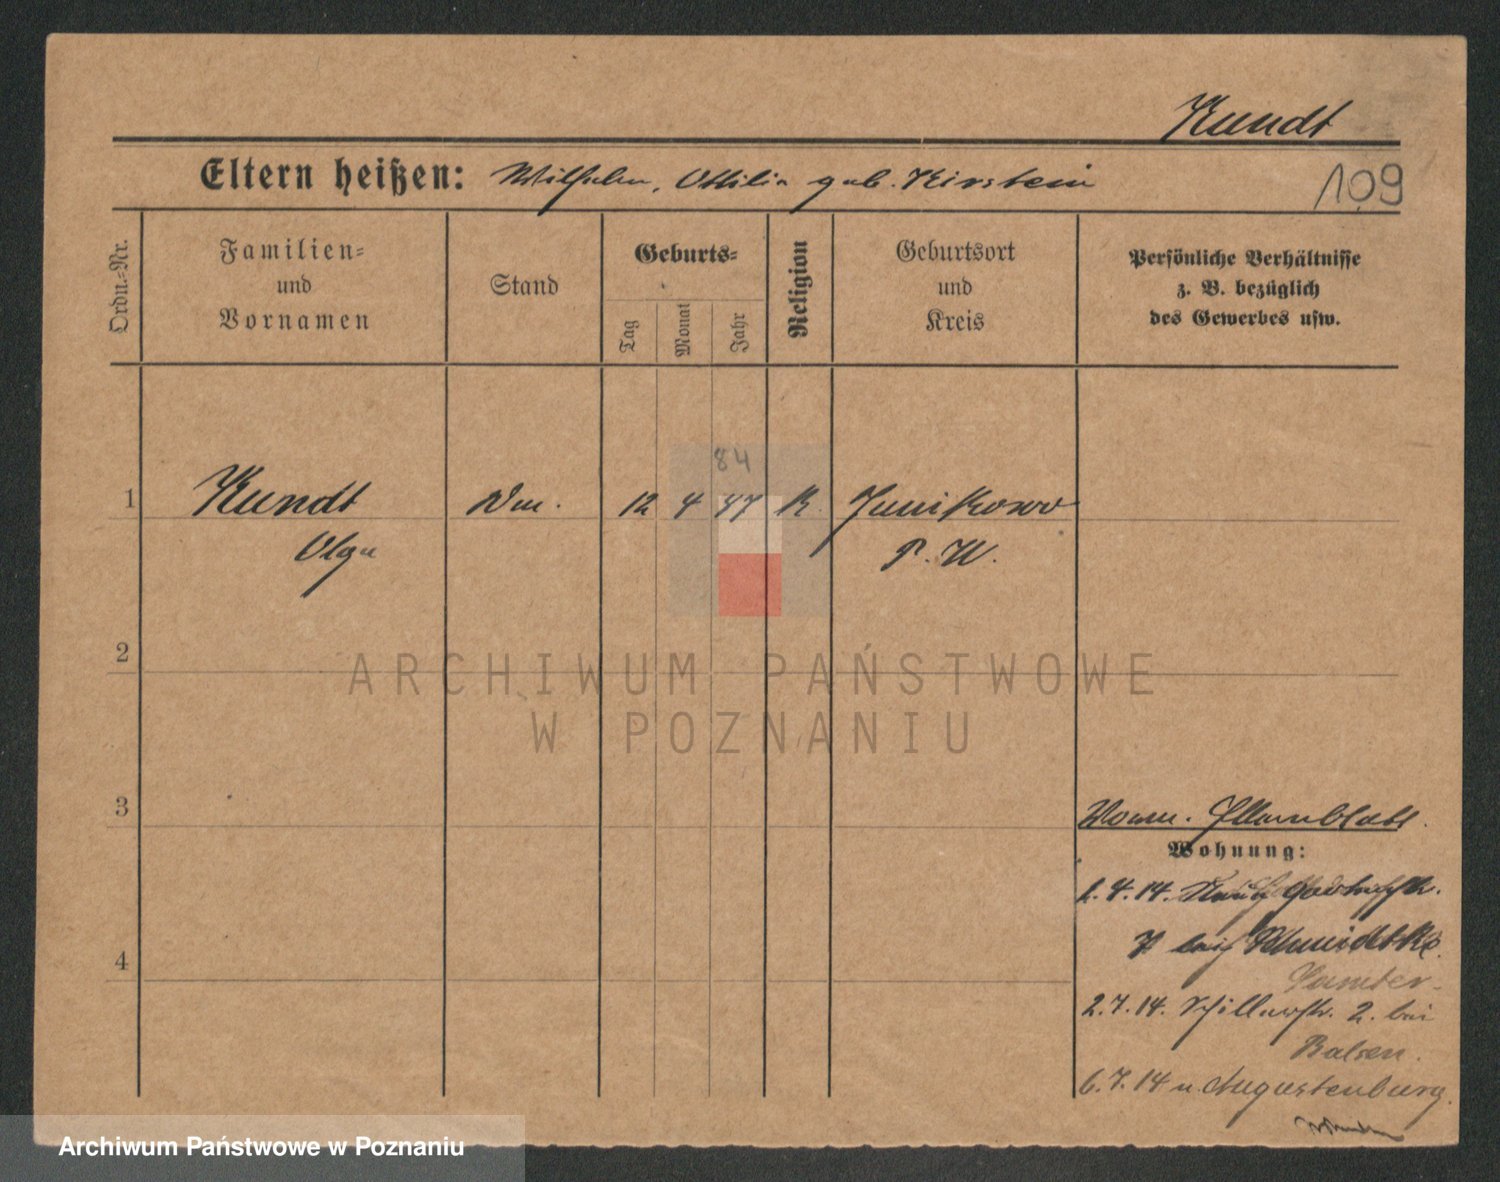 Kundt
Eltern heißen: Wilhelm, Ottilie geb. Kirstein
109
Ordn.-Nr.
Familien-
und
Vornamen
Stand
Geburts-
Tag
Monat
Jahr
Religion
Geburtsort
und
Kreis
Persönliche Verhältnisse
z. B. bezüglich
des Gewerbes usw.
84
1 Kundt 12 4 47 K. Junikowo
Olga P. W.
2
ARCHIWUM PAŃSTWOWE
W POZNANIU
3
Stammblatt.
Wohnung:
1.4.14.
7 bei Schmidtke
4
2.7.14. Schillerstr. 2. bei
Balsen.
6.7.14 n. Augustenburg.
Archiwum Państwowe w Poznaniu